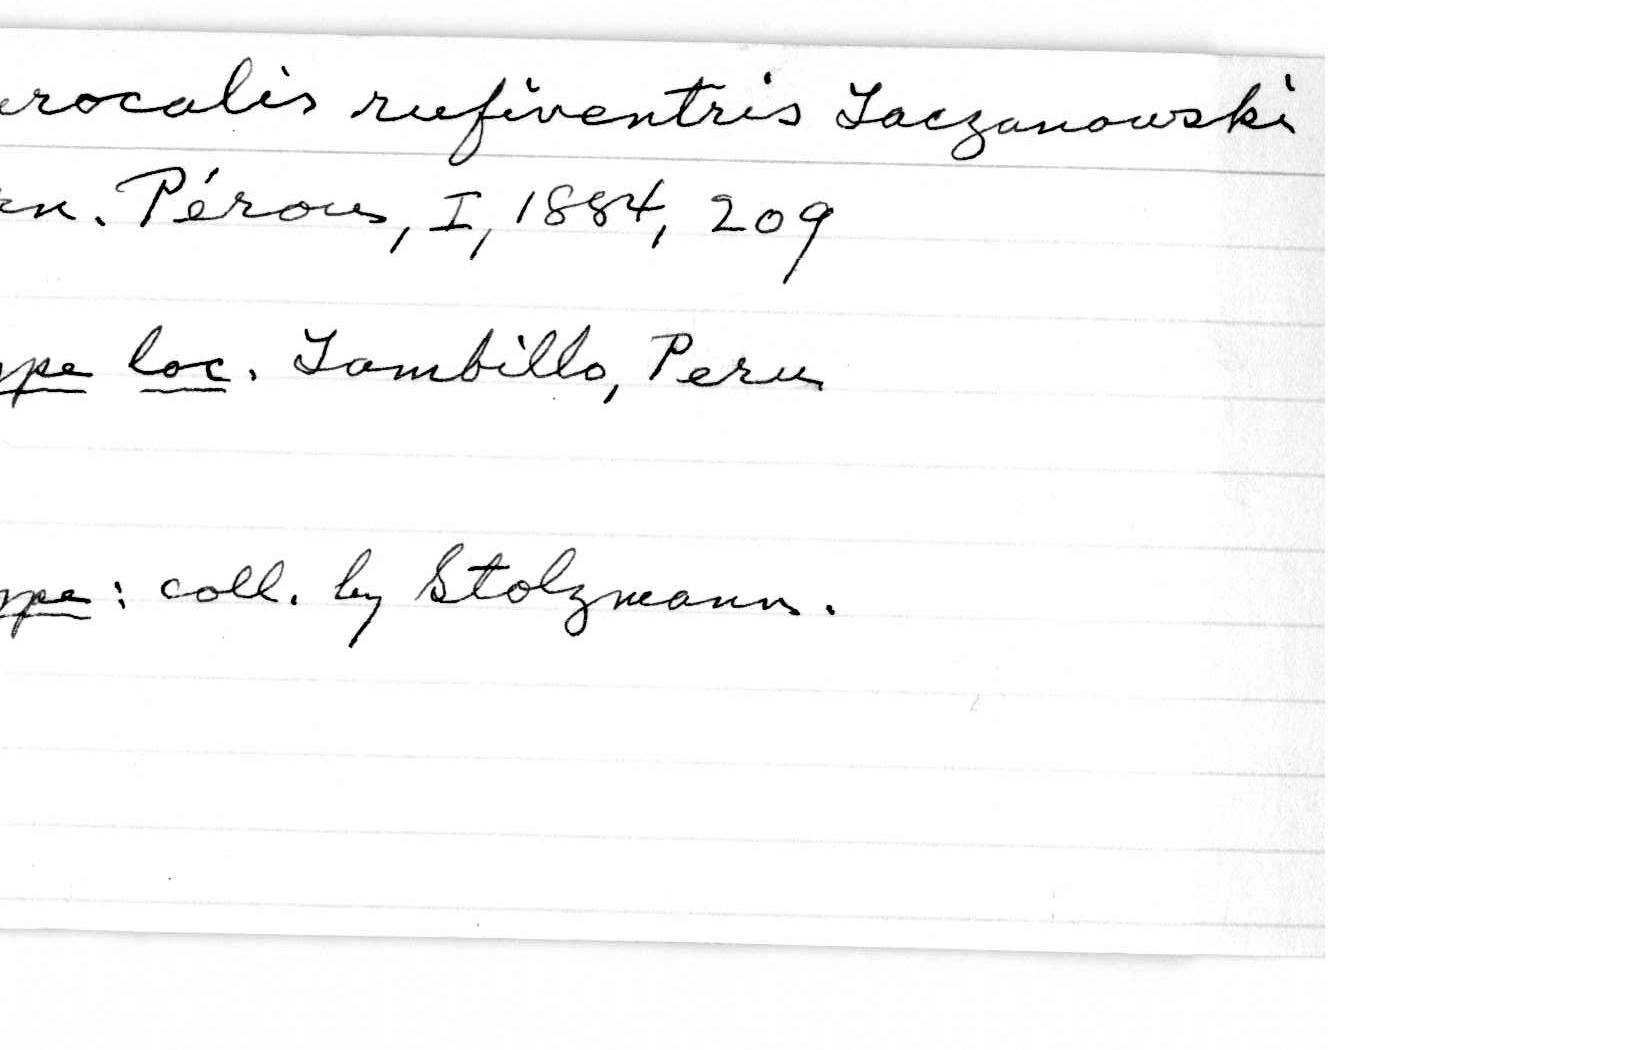 urocalis rufiventris Taczanowski
rn. Pérou, I, 1884, 209
ype loc. Tambillo, Peru
ype: coll. by Stolzmann.